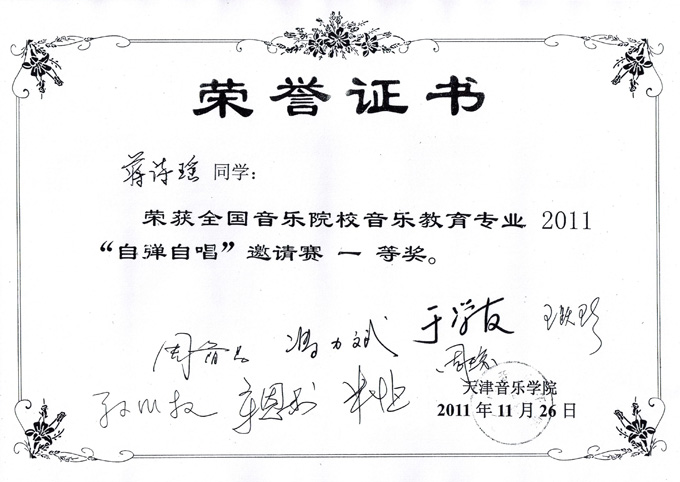 荣誉证书
蒋诗瑶 同学：
荣获全国音乐院校音乐教育专业 2011
“自弹自唱”邀请赛 一 等奖。
冯力斌 于学友
天津音乐学院
2011 年 11 月 26 日